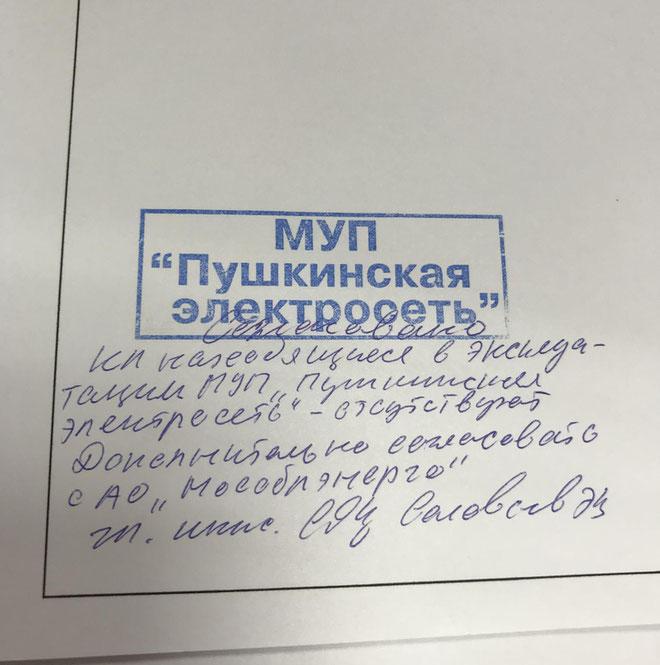 МУП
“Пушкинская
электросеть”
Согласовано
КЛ находящиеся в эксплуа-
тации МУП „Пушкинская
электросеть“ - отсутствуют
Дополнительно согласовать
с АО „Мособлэнерго“
инж. Соловьев